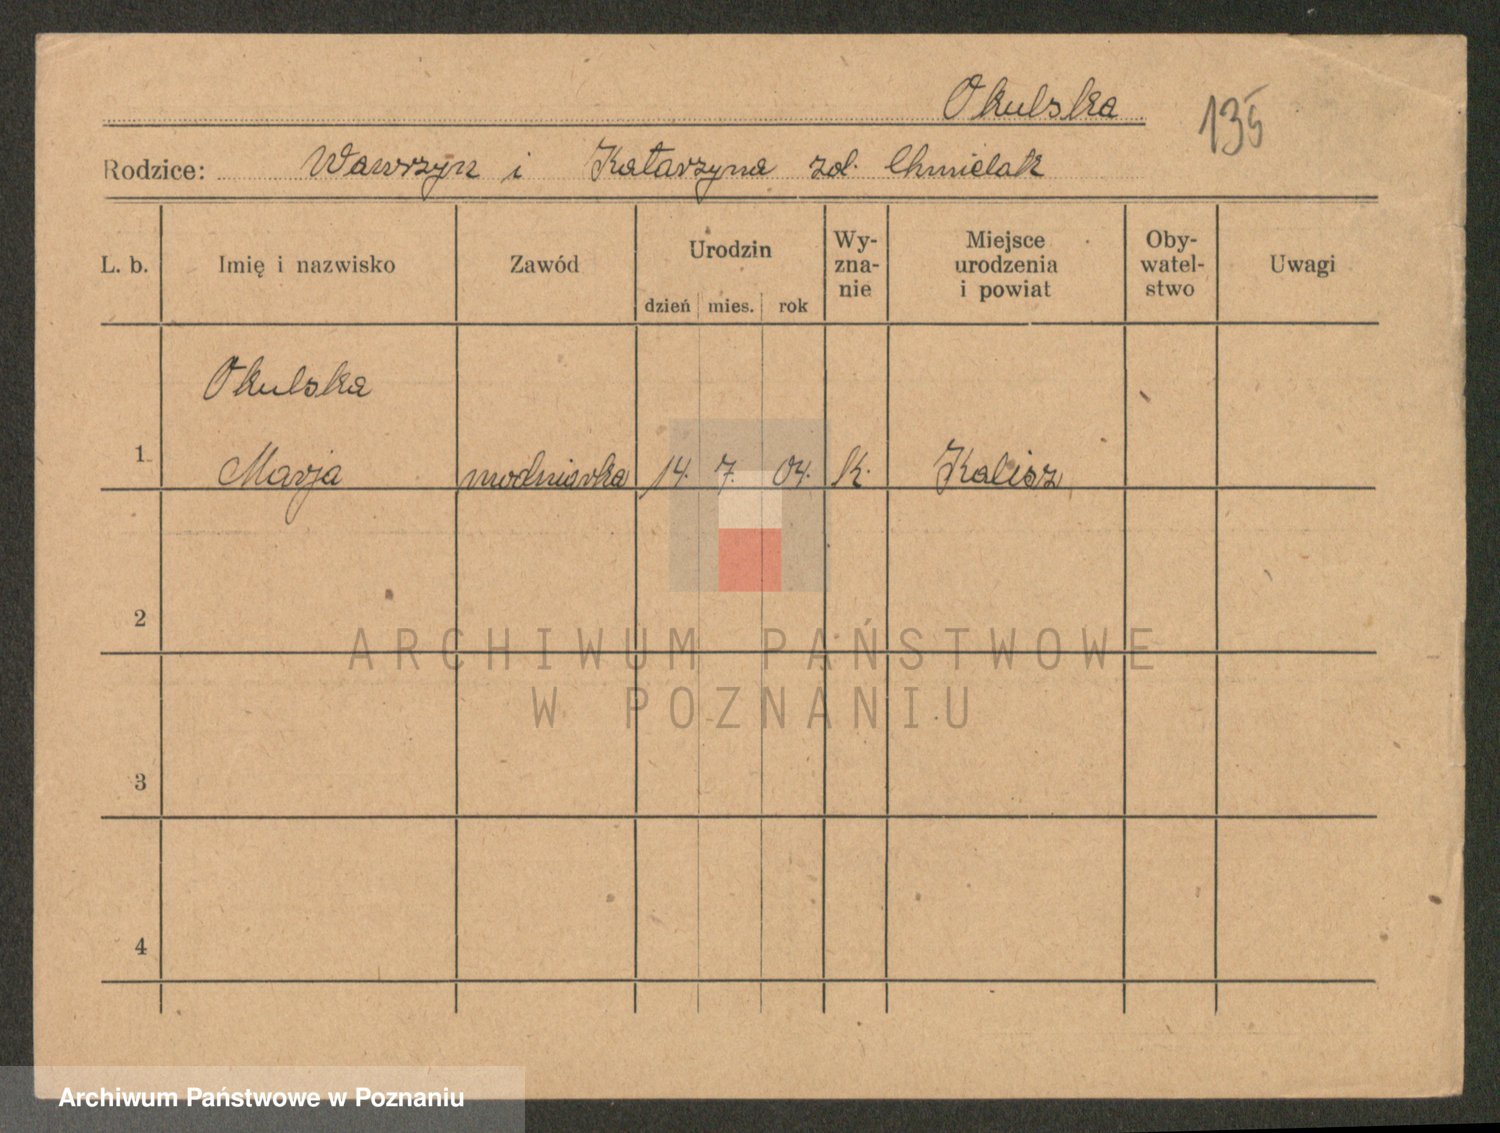 Okulska
135
Rodzice: Wawrzyn i Katarzyna zd. Chmielak
L. b. Imię i nazwisko Zawód Urodzin dzień mies. rok Wy-zna-nie Miejsce urodzenia i powiat Oby-watel-stwo Uwagi
Okulska
1. Marja modniarka 14. 7. 04. K. Kalisz
2
ARCHIWUM PAŃSTWOWE
W POZNANIU
3
4
Archiwum Państwowe w Poznaniu